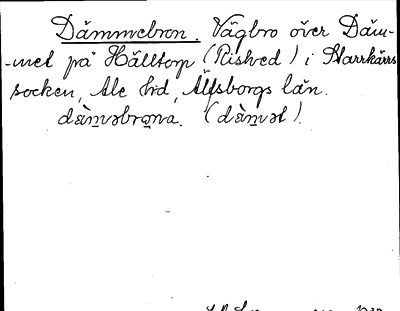 Dämmebron. Vägbro över Däm-
-met på Hälltorp (Rished) i Starrkärrs
socken, Ale hd, Älfsborgs län.
dämǝbrɷna. (dämǝt).